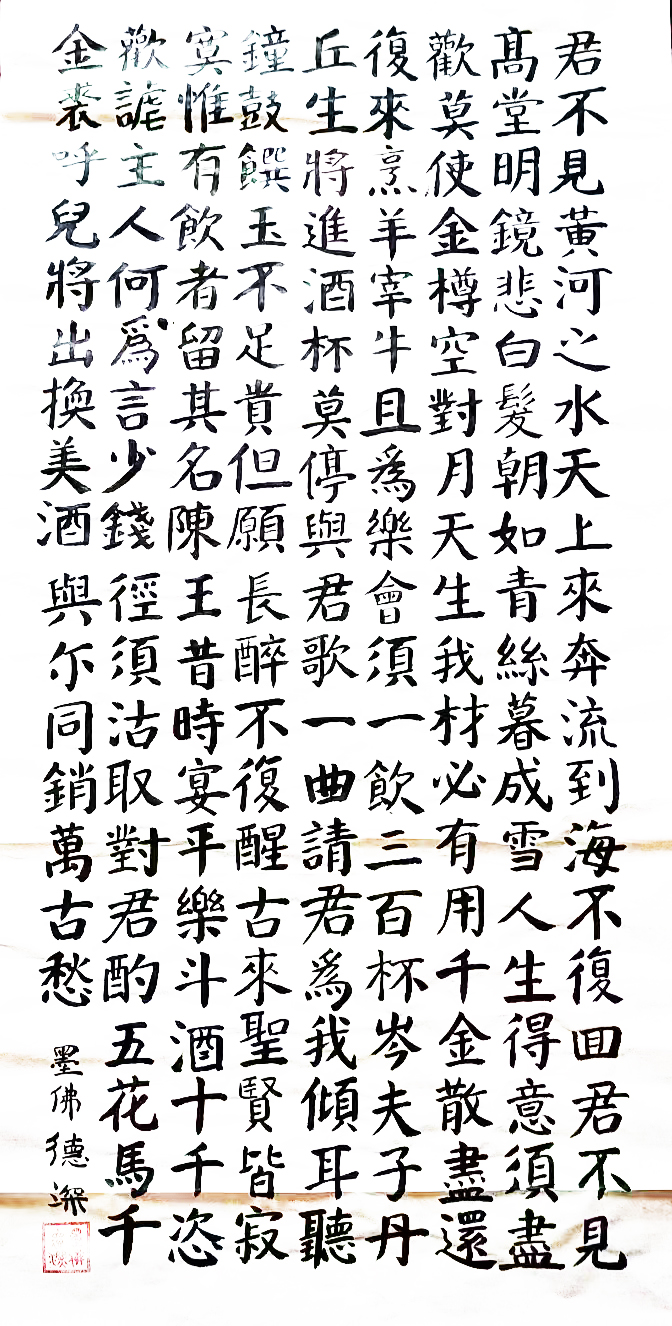 君不見黃河之水天上來奔流到海不復回君不見
髙堂明鏡悲白髮朝如青絲暮成雪人生得意須盡
歡莫使金樽空對月天生我材必有用千金散盡還
復來烹羊宰牛且爲樂會須一飲三百杯岑夫子丹
丘生將進酒杯莫停與君歌一曲請君爲我傾耳聽
鐘鼓饌玉不足貴但願長醉不復醒古來聖賢皆寂
寞惟有飲者留其名陳王昔時宴平樂斗酒十千恣
歡謔主人何爲言少錢徑須沽取對君酌五花馬千
金裘呼兒將出換美酒與尔同銷萬古愁
墨佛德深